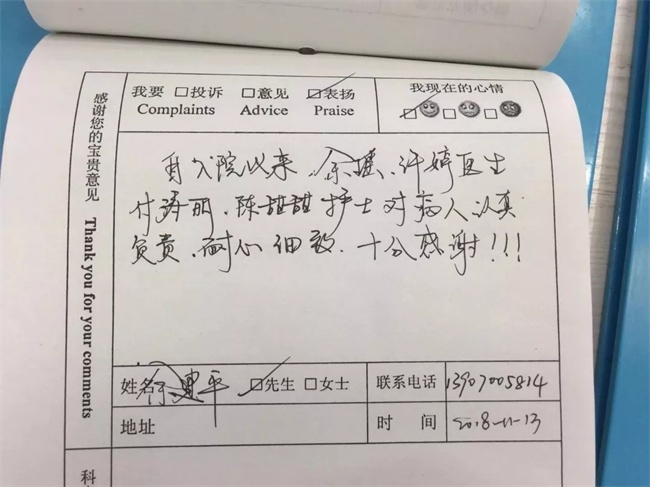 感谢您的宝贵意见 Thank you for your comments
我要 □投诉 □意见 ☑表扬
Complaints Advice Praise
我现在的心情
自入院以来、余瑛、许婷医生
付海丽、陈甜甜护士对病人认真
负责、耐心细致、十分感谢!!!
姓名 平 ☑先生 □女士 联系电话 13907005814
地址 时间 2018-11-13
科